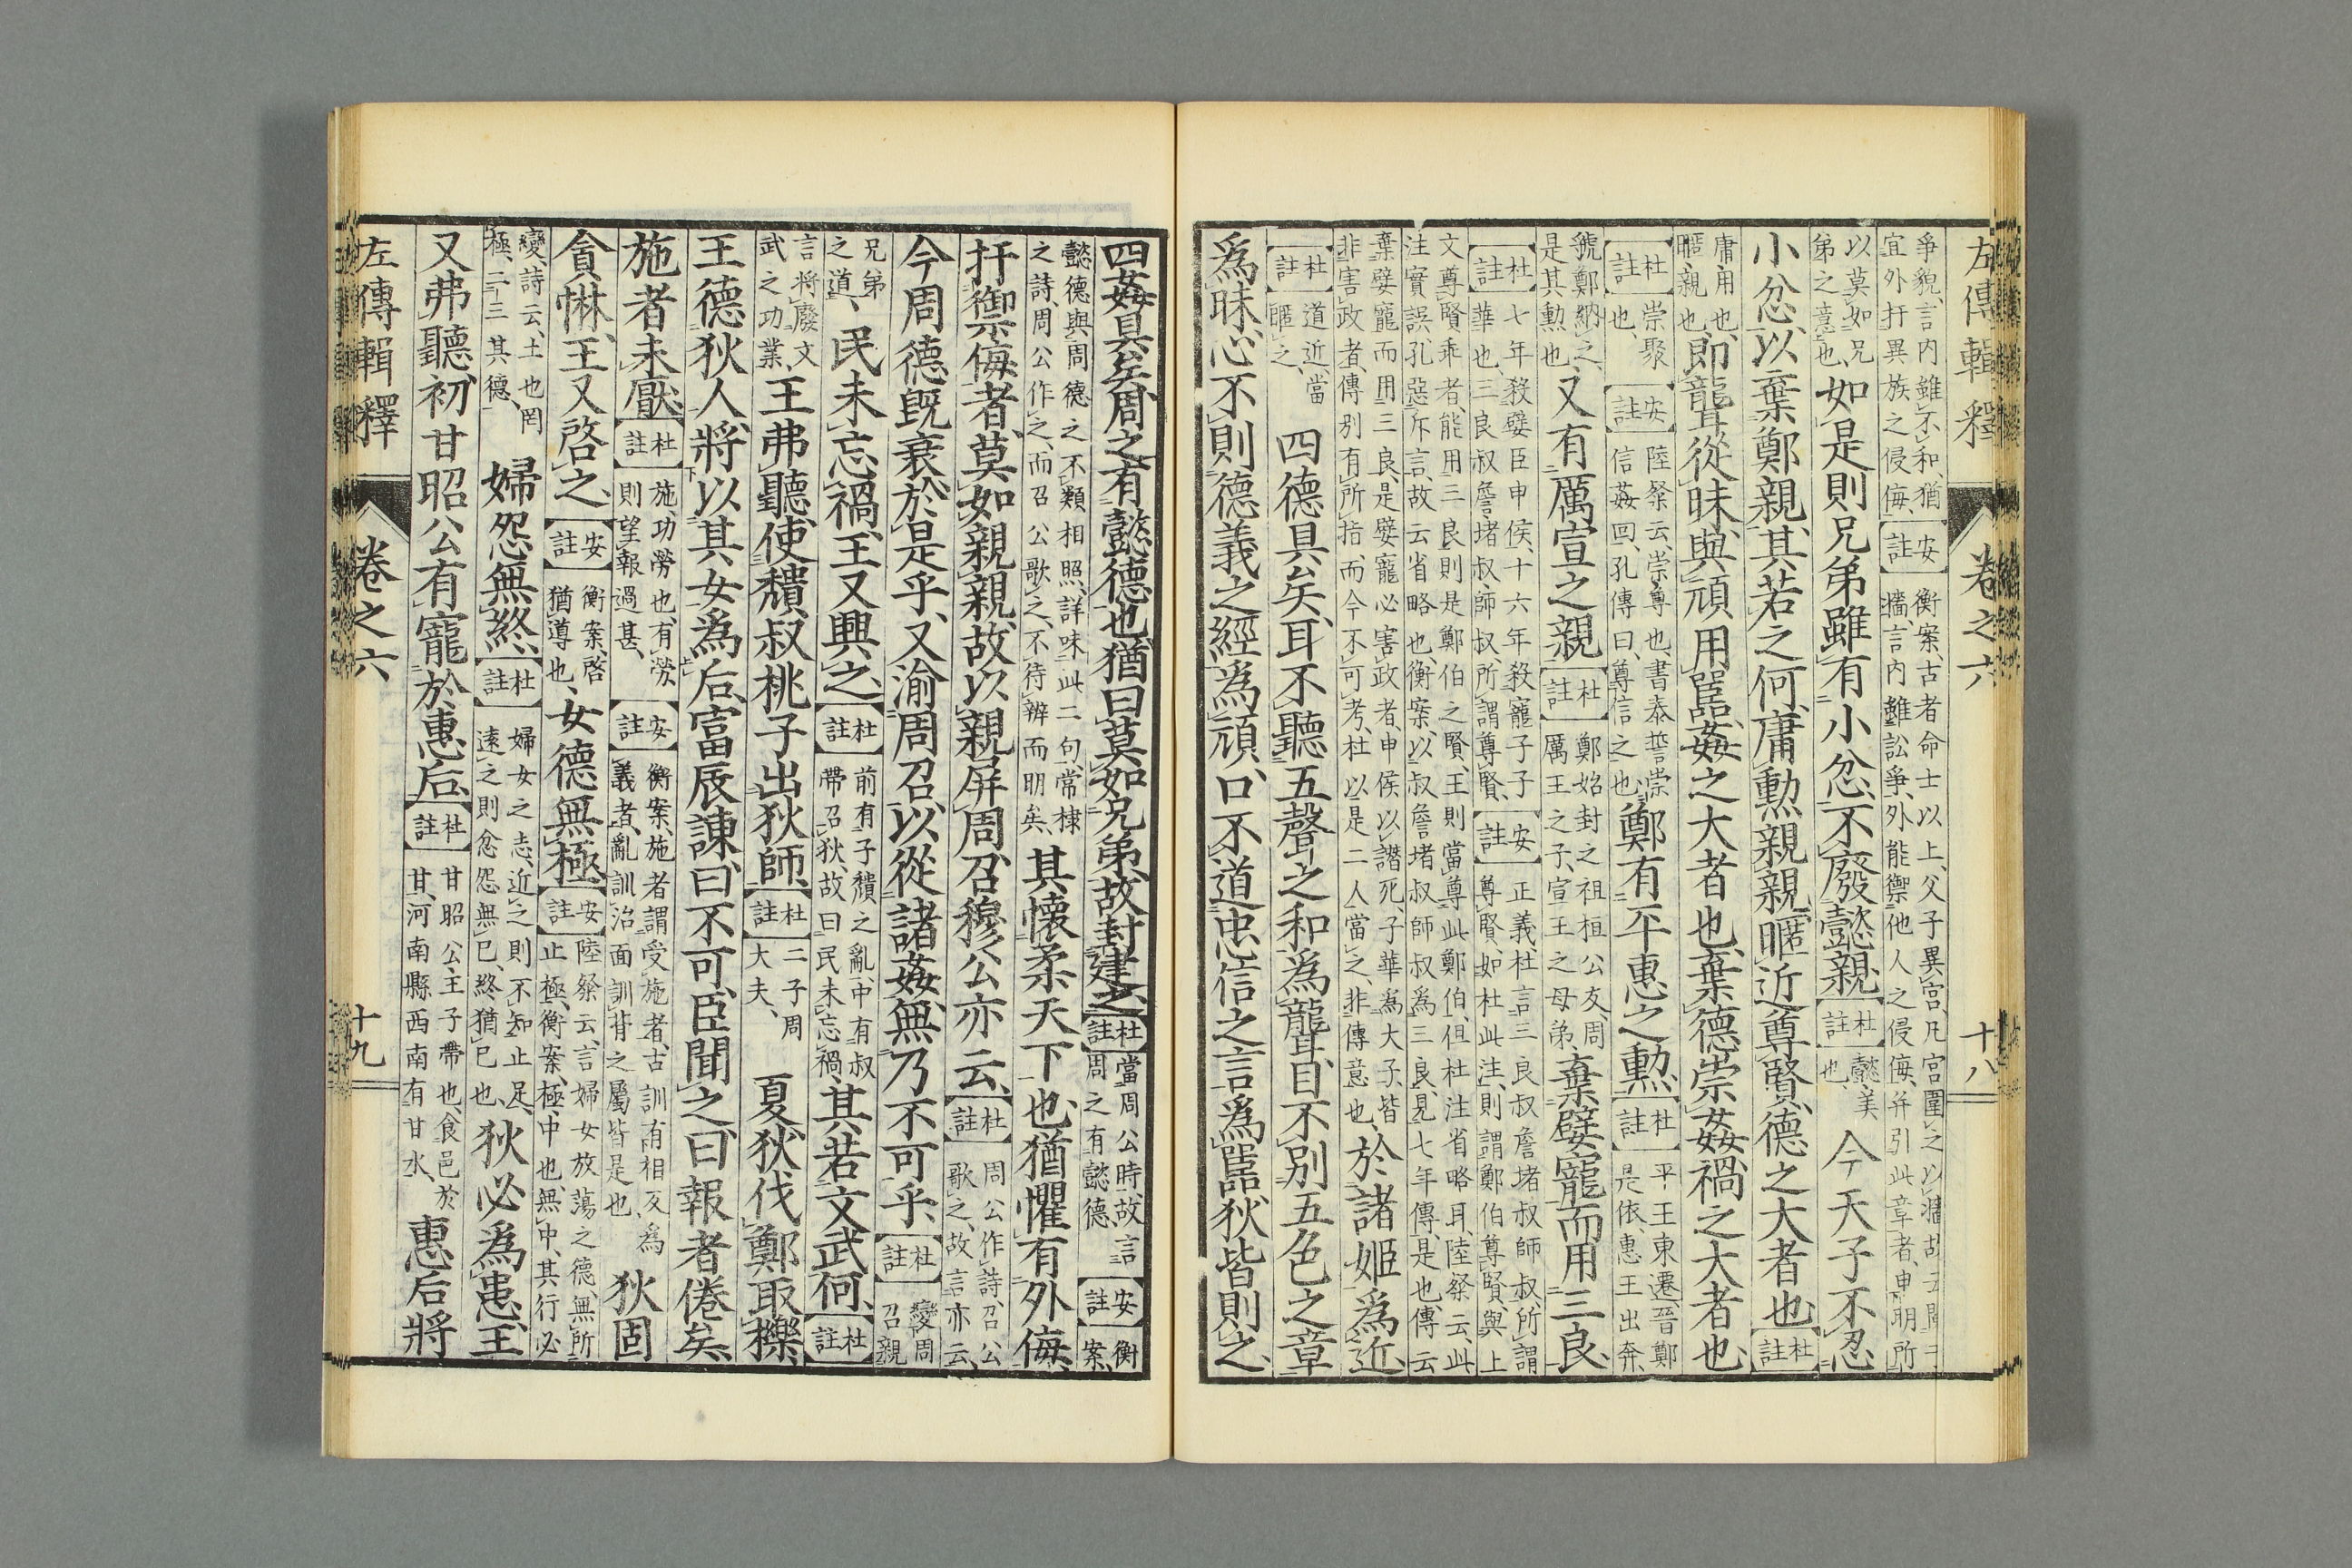 左傳輯釋 卷之六 十八
爭貌、言內雖不和、猶
宜外扞異族之侵侮、
【安註】
衡案、古者命士以上、父子異宮、凡宮圍之以牆、故云
牆、言內雖訟爭、外能禦他人之侵侮、幷引此章者、申明所
以莫如兄
弟之意也、
如是則兄弟雖有小忿、不廢懿親、【杜註】
懿美
也、
今天子不忍
小忿、以棄鄭親、其若之何、庸勳親親、暱近尊賢、德之大者也、【杜註】
庸用也、
暱親也、
卽聾從昧、與頑用嚚、姦之大者也、棄德崇姦、禍之大者也、
【杜註】
崇聚
也、
【安註】
陸粲云、崇尊也、書泰誓崇
信姦回、孔傳曰、尊信之也、
鄭有平惠之勳、【杜註】
平王東遷、晉鄭
是依、惠王出奔、
虢鄭納之、
是其勳也、
又有厲宣之親、【杜註】
鄭始封之祖桓公友、周
厲王之子、宣王之母弟、
棄嬖寵而用三良、
【杜註】
七年殺嬖臣申侯、十六年殺寵子子
華也、三良叔詹堵叔師叔、所謂尊賢、
【安註】
正義、杜言三良叔詹堵叔師叔、所謂
尊賢、如杜此注、則謂鄭伯尊賢、與上
文尊賢乖者、能用三良、則是鄭伯之賢、王則當尊此鄭伯、但杜注省略耳、陸粲云、此
注實誤、孔惡斥言、故云省略也、衡案、以叔詹堵叔師叔爲三良、見七年傳、是也、傳云
棄嬖寵而用三良、是嬖寵必害政者、申侯以譖死、子華爲大子、皆
非害政者、傳別有所指、而今不可考、杜以是二人當之、非傳意也、
於諸姬爲近、
【杜註】
道近當
暱之、
四德具矣、耳不聽五聲之和爲聾、目不別五色之章
爲昧、心不則德義之經爲頑、口不道忠信之言爲嚚、狄皆則之、
四姦具矣、周之有懿德也、猶曰莫如兄弟、故封建之、【杜註】
當周公時、故言
周之有懿德、
【安註】
衡
案、
懿德與周德之不類相照、詳味此二句、常棣
之詩、周公作之、而召公歌之、不待辨而明矣、
其懷柔天下也、猶懼有外侮、
扞禦侮者、莫如親親、故以親屏周、召穆公亦云、【杜註】
周公作詩、召公
歌之、故言亦云、
今周德旣衰、於是乎、又渝周召、以從諸姦、無乃不可乎、【杜註】
變周
召親
兄弟
之道、
民未忘禍、王又興之、【杜註】
前有子穨之亂、中有叔
帶召狄、故曰民未忘禍、
其若文武何、【杜註】
言將廢文
武之功業、
王弗聽、使穨叔桃子出狄師、【杜註】
二子周
大夫、
夏狄伐鄭取櫟、
王德狄人、將以其女爲后、富辰諫曰、不可、臣聞之曰、報者倦矣、
施者未厭、【杜註】
施、功勞也、有勞
則望報過甚、
【安註】
衡案、施者謂受施者、古訓有相反爲
義者、亂訓治面訓背之屬皆是也
狄固
貪惏、王又啓之、【安註】
衡案、啓
猶導也、
女德無極、【安註】
陸粲云、言婦女放蕩之德、無所
止極、衡案、極、中也、無中、其行必
變、詩云、士也罔
極、二三其德、
婦怨無終、【杜註】
婦女之志、近之則不知止足、
遠之則忿怨無已、終猶已也、
狄必爲患、王
又弗聽、初甘昭公有寵於惠后、【杜註】
甘昭公王子帶也、食邑於
甘、河南縣西南有甘水、
惠后將
左傳輯釋 卷之六 十九